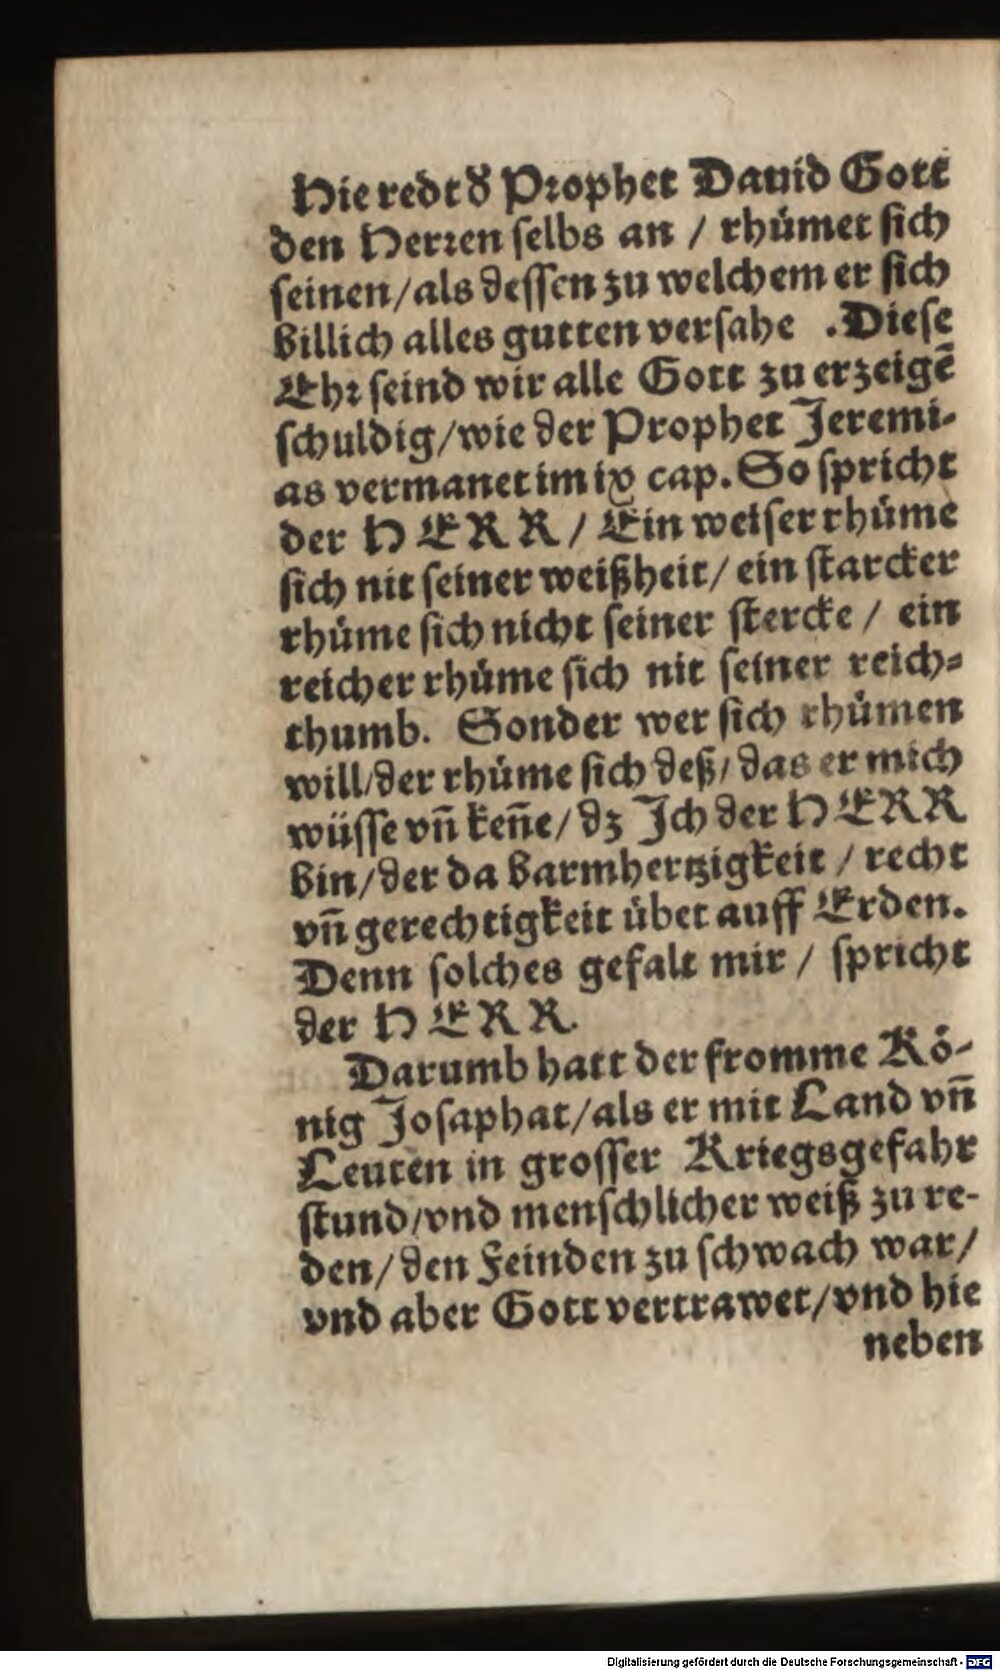 Hie redt d̕ Prophet Dauid Gott
den Herꝛen ſelbs an / rhuͤmet ſich
ſeinen / als deſſen zu welchem er ſich
billich alles gutten verſahe . Dieſe
Ehꝛ ſeind wir alle Gott zu erzeigē
ſchuldig / wie der Prophet Jeremi-
as vermanet im ix cap. So ſpricht
der HERR / Ein weiſer rhuͤme
ſich nit ſeiner weißheit / ein ſtarcker
rhuͤme ſich nicht ſeiner ſtercke / ein
reicher rhuͤme ſich nit ſeiner reich-
thumb. Sonder wer ſich rhuͤmen
will / der rhuͤme ſich deß / das er mich
wüſſe vn̄ ken̄e / dz Ich der HERR
bin / der da barmhertzigkeit / recht
vn̄ gerechtigkeit übet auff Erden.
Denn ſolches gefalt mir / ſpricht
der HERR.
Darumb hatt der fromme Koͤ-
nig Joſaphat / als er mit Land vn̄
Leuten in groſſer Kriegsgefahr
ſtund / vnd menſchlicher weiß zu re-
den / den Feinden zu ſchwach war /
vnd aber Gott vertrawet / vnd hie
neben
Digitalisierung gefördert durch die Deutsche Forschungsgemeinschaft - DFG